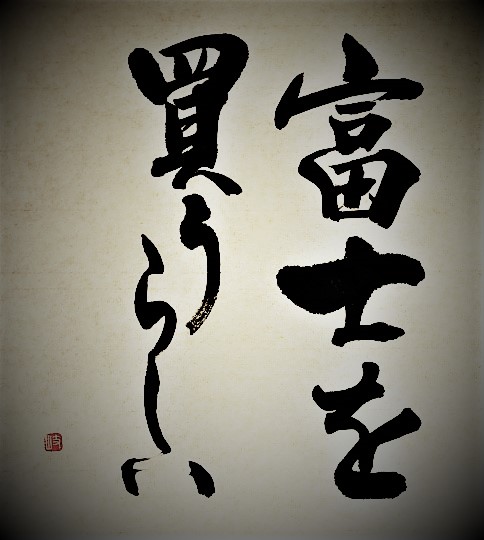 富士を
買うらしい